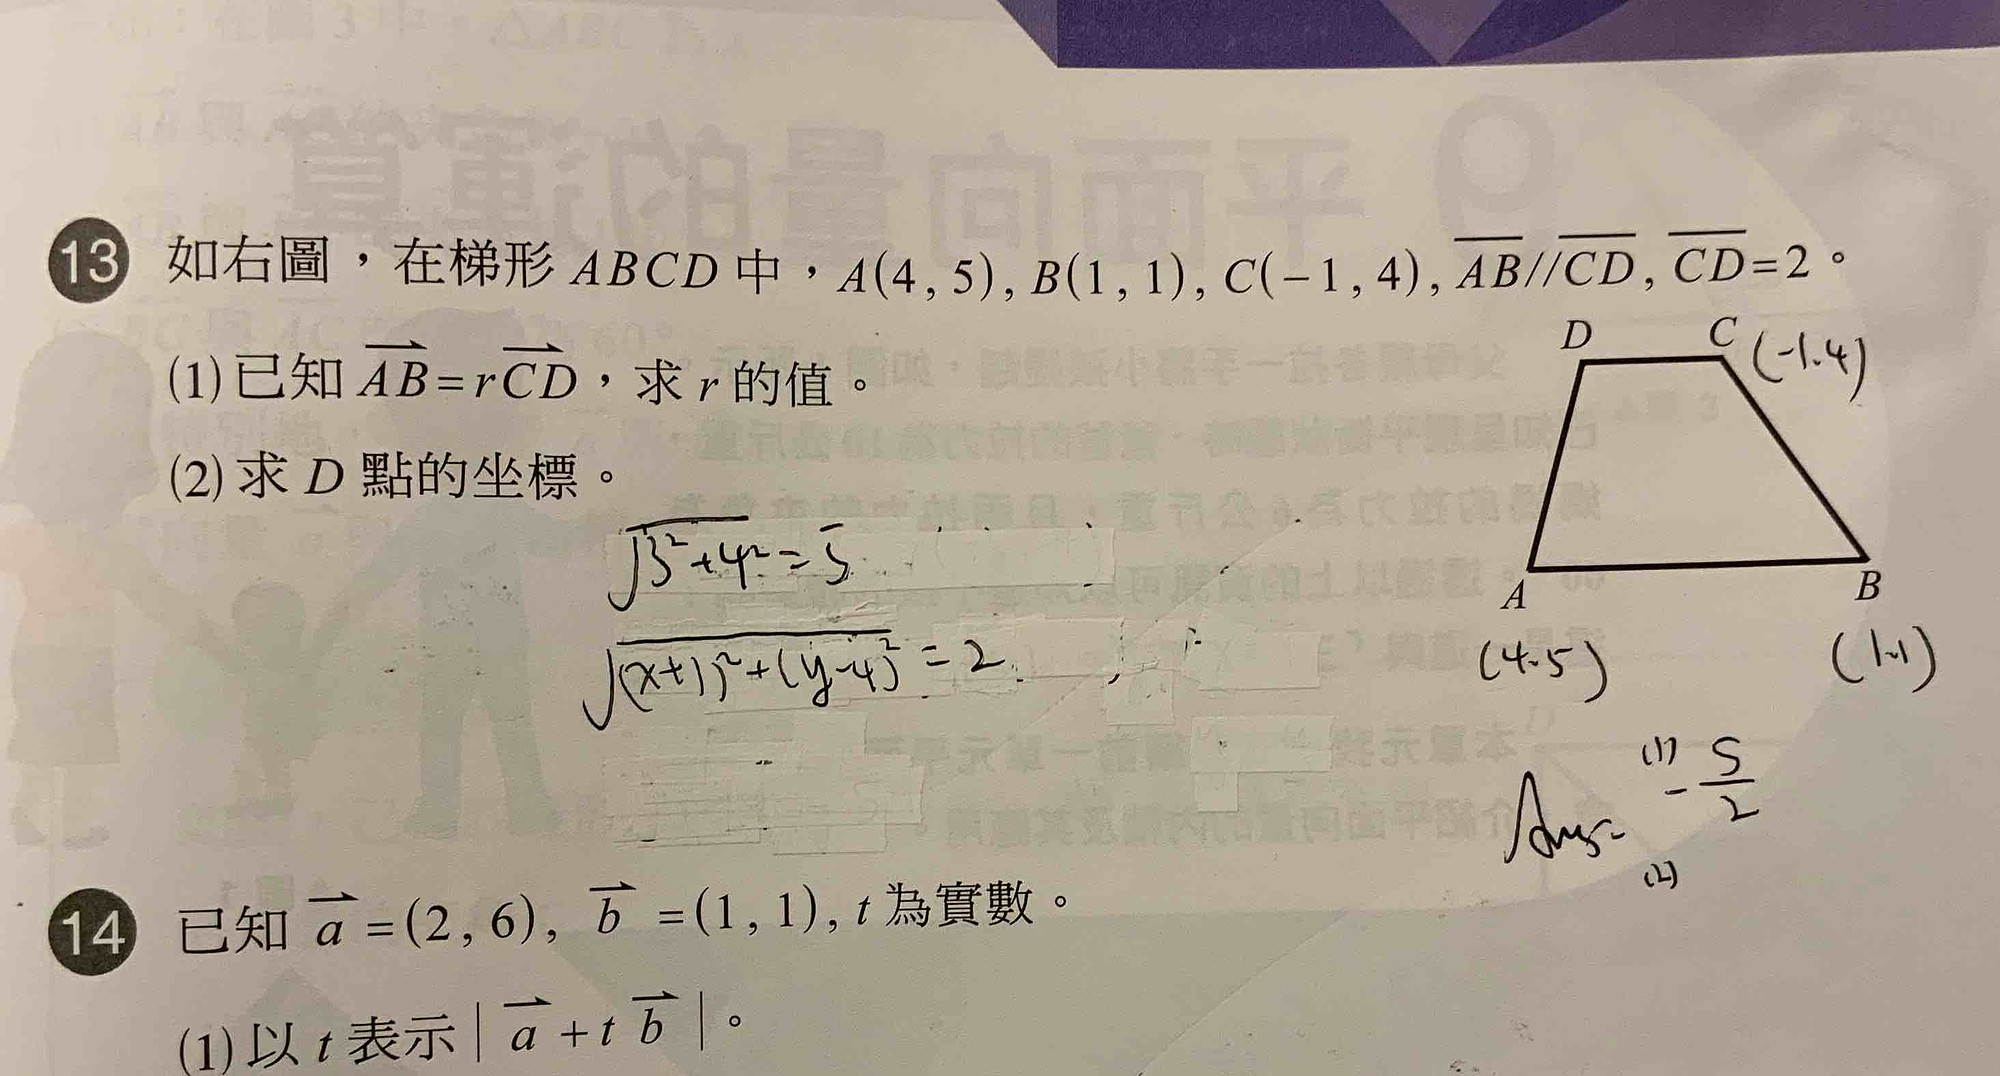 13 如右圖，在梯形 ABCD 中，A(4, 5), B(1, 1), C(−1, 4), AB//CD, CD=2。
(1) 已知 AB = rCD，求 r 的值。
(2) 求 D 點的坐標。
D C (-1,4)
A B
(4,5) (1,1)
√3²+4² = 5
√(x+1)²+(y-4)² = 2
Ans: (1) -5/2
(2)
14 已知 a = (2, 6), b = (1, 1), t 為實數。
(1) 以 t 表示 | a + t b |。